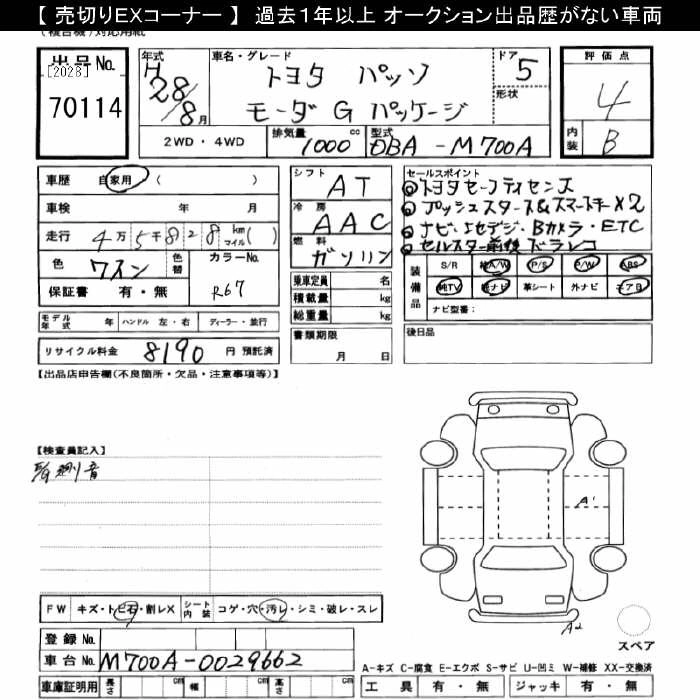 【 売切りEXコーナー 】 過去1年以上 オークション出品歴がない車両
(複合機)対応用紙
出品No.
[2028]
70114
年式
H
28/8月
車名・グレード
トヨタ パッソ
モーダ G パッケージ
ドア 5
形状
2WD・4WD
排気量 1000 cc
型式 DBA-M700A
評価点
4
内装 B
車歴 自家用 ( )
車検 年 月
走行 4万5千828 km マイル( )
色 ワイン 色替
カラーNo. R67
保証書 有・無
モデル年式 年 ハンドル 左・右 ディーラー・並行
リサイクル料金 8190 円 預託済
シフト AT
冷房 AAC
燃料 ガソリン
乗車定員 名
積載量 kg
総重量 kg
書類期限
月 日
セールスポイント
トヨタセーフティセンス
プッシュスタート&スマートキーX2
ナビ・フルセグ・Bカメラ・ETC
セルスター前後ドラレコ
装備品
S/R 純A/W P/S P/W ABS
純TV 純ナビ 革シート 外ナビ エアB
ナビ型番:
後日品
【出品店申告欄(不良箇所・欠品・注意事項等)】
【検査員記入】
A1
FW キズ・トビ石・割レX シート内装 コゲ・穴・汚レ・シミ・破レ・スレ
登録No.
車台No. M700A-0029662
車庫証明用 長さ cm 幅 cm 高さ cm
A2
スペア
A-キズ C-腐食 E-エクボ S-サビ U-凹ミ W-補修 XX-交換済
工具 有・無 ジャッキ 有・無